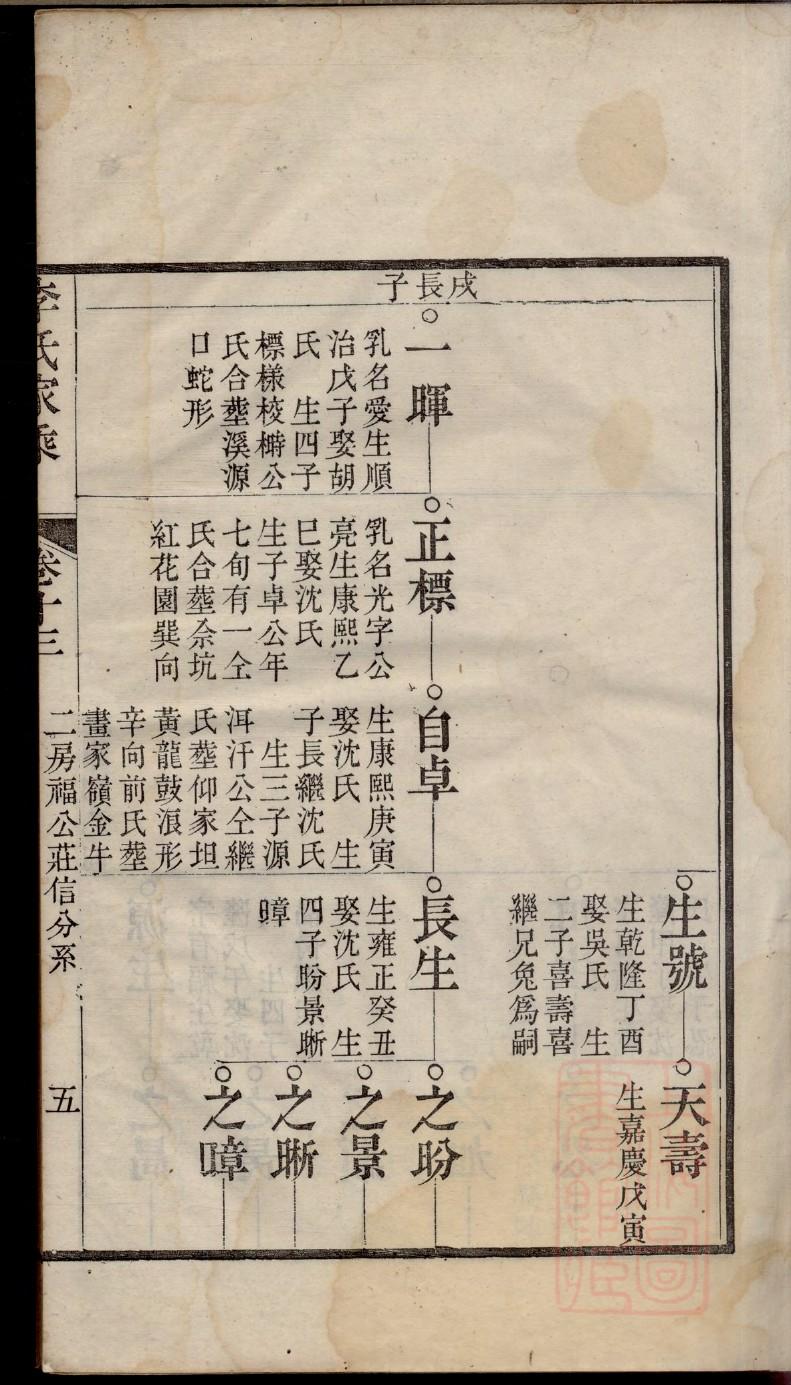 生號
生乾隆丁酉
娶吳氏　生
二子喜壽喜
繼兄兔爲嗣
天壽
生嘉慶戊寅
戌長子
一暉
乳名愛生順
治戊子娶胡
氏　生四子
標樣梭榯公
氏合塟溪源
口蛇形
正標
乳名光字公
亮生康熙乙
巳娶沈氏
生子卓公年
七旬有一仝
氏合塟佘坑
紅花園巽向
自卓
生康熙庚寅
娶沈氏　生
子長繼沈氏
生三子源
洱汗公仝繼
氏塟仰家坦
黃龍鼓浪形
辛向前氏塟
畫家嶺金牛
長生
生雍正癸丑
娶沈氏　生
四子盼景晣
暲
之盼
之景
之晣
之暲
李氏家乘
卷十三
二房福公莊信分系
五